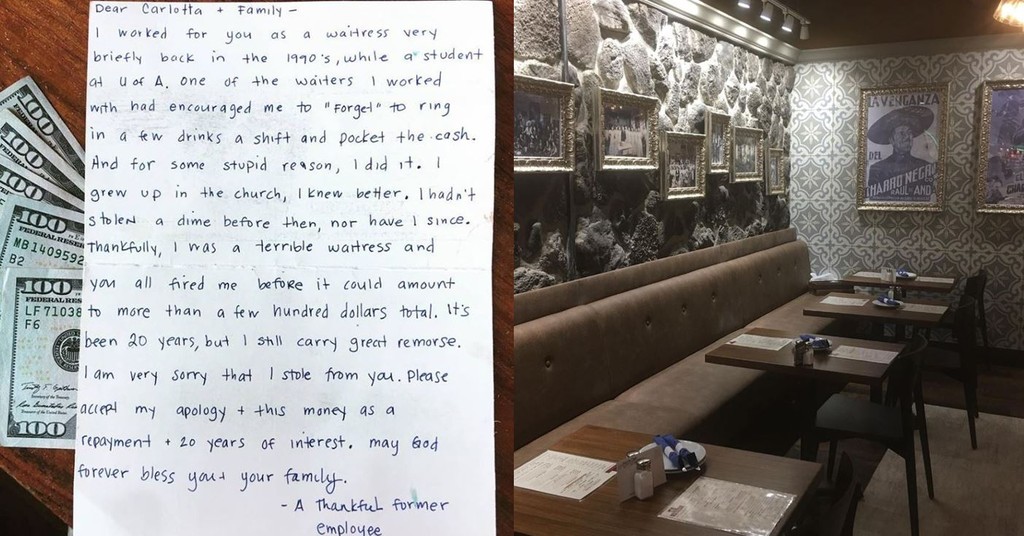 Dear Carlotta + Family -
I worked for you as a waitress very
briefly back in the 1990's, while a student
at U of A. One of the waiters I worked
with had encouraged me to "forget" to ring
in a few drinks a shift and pocket the cash.
And for some stupid reason, I did it. I
grew up in the church, I knew better. I hadn't
stolen a dime before then, nor have I since.
Thankfully, I was a terrible waitress and
you all fired me before it could amount
to more than a few hundred dollars total. It's
been 20 years, but I still carry great remorse.
I am very sorry that I stole from you. Please
accept my apology + this money as a
repayment + 20 years of interest. may God
forever bless you + your family.
- A Thankful former
employee
100
100
100
100
FEDERAL RESE
MB1409592
B2
100
FEDERAL RES
LF71038
F6
100
LA VENGANZA
DEL
CHARRO NEGRO
RAUL AND